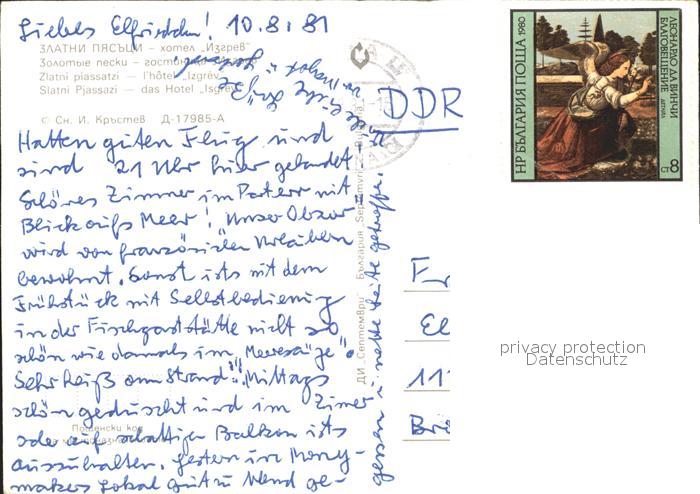 Liebes Elfriedchen! 10.8.81
ЗЛАТНИ ПЯСЪЦИ – хотел „Изгрев"
Золотые пески –
Zlatni piassatzi – l'hôtel „Izgrév"
Slatni Pjassazi – das Hotel „Isgrev"
© Сн. И. Кръстев Д-17985-А
Hatten guten Flug und
sind 21 Uhr hier gelandet.
Schönes Zimmer im Parterr mit
Blick aufs Meer!
wird von französischen Urlaubern
bewohnt. Sonst ists mit dem
Frühstück mit Selbstbedienung
in der Fischgaststätte nicht so
schön wie damals im
Sehr heiß am Strand! Mittags
schön geduscht und im Zimmer
oder auf schattigen Balkon ists
auszuhalten. Gestern im Money-
makers Lokal gut zu Abend ge-
gessen u. nette Leute getroffen.
Пощенски код
ДИ „Септември"
България
НР БЪЛГАРИЯ ПОЩА 1980
ЛЕОНАРДО ДА ВИНЧИ
БЛАГОВЕЩЕНИЕ
ДЕТАЙЛ
8 ст
DDR
Fr
El
111
privacy protection
Datenschutz